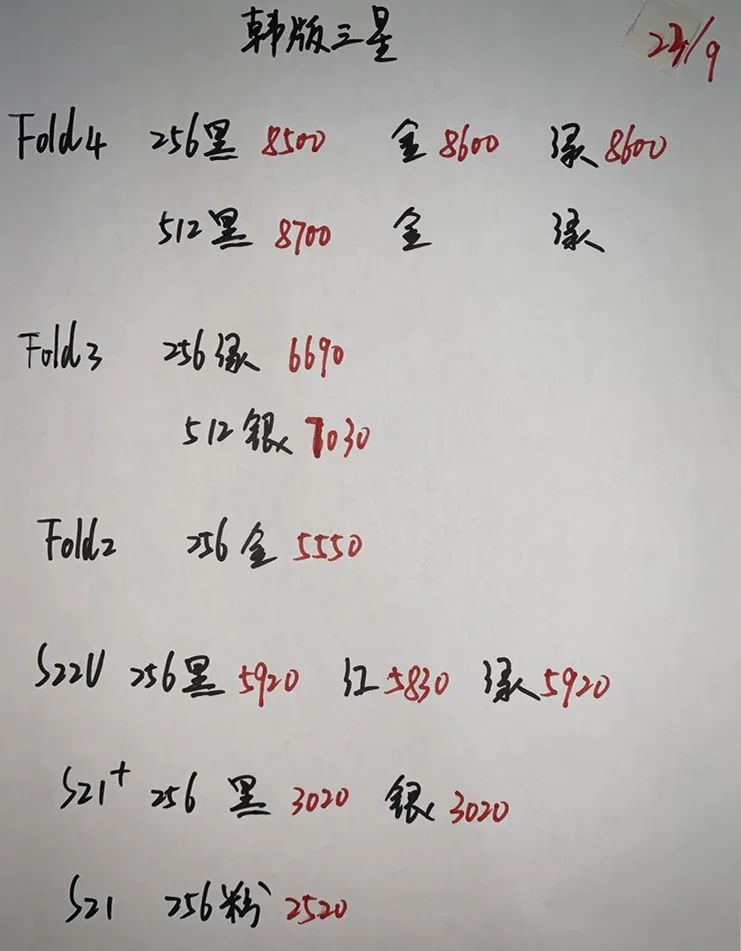 韩版三星
23/9
Fold4 256黑 8500 金 8600 绿 8600
512黑 8700 金 绿
Fold3 256绿 6690
512银 7030
Fold2 256金 5550
S22U 256黑 5920 红 5830 绿 5920
S21+ 256 黑 3020 银 3020
S21 256粉 2520